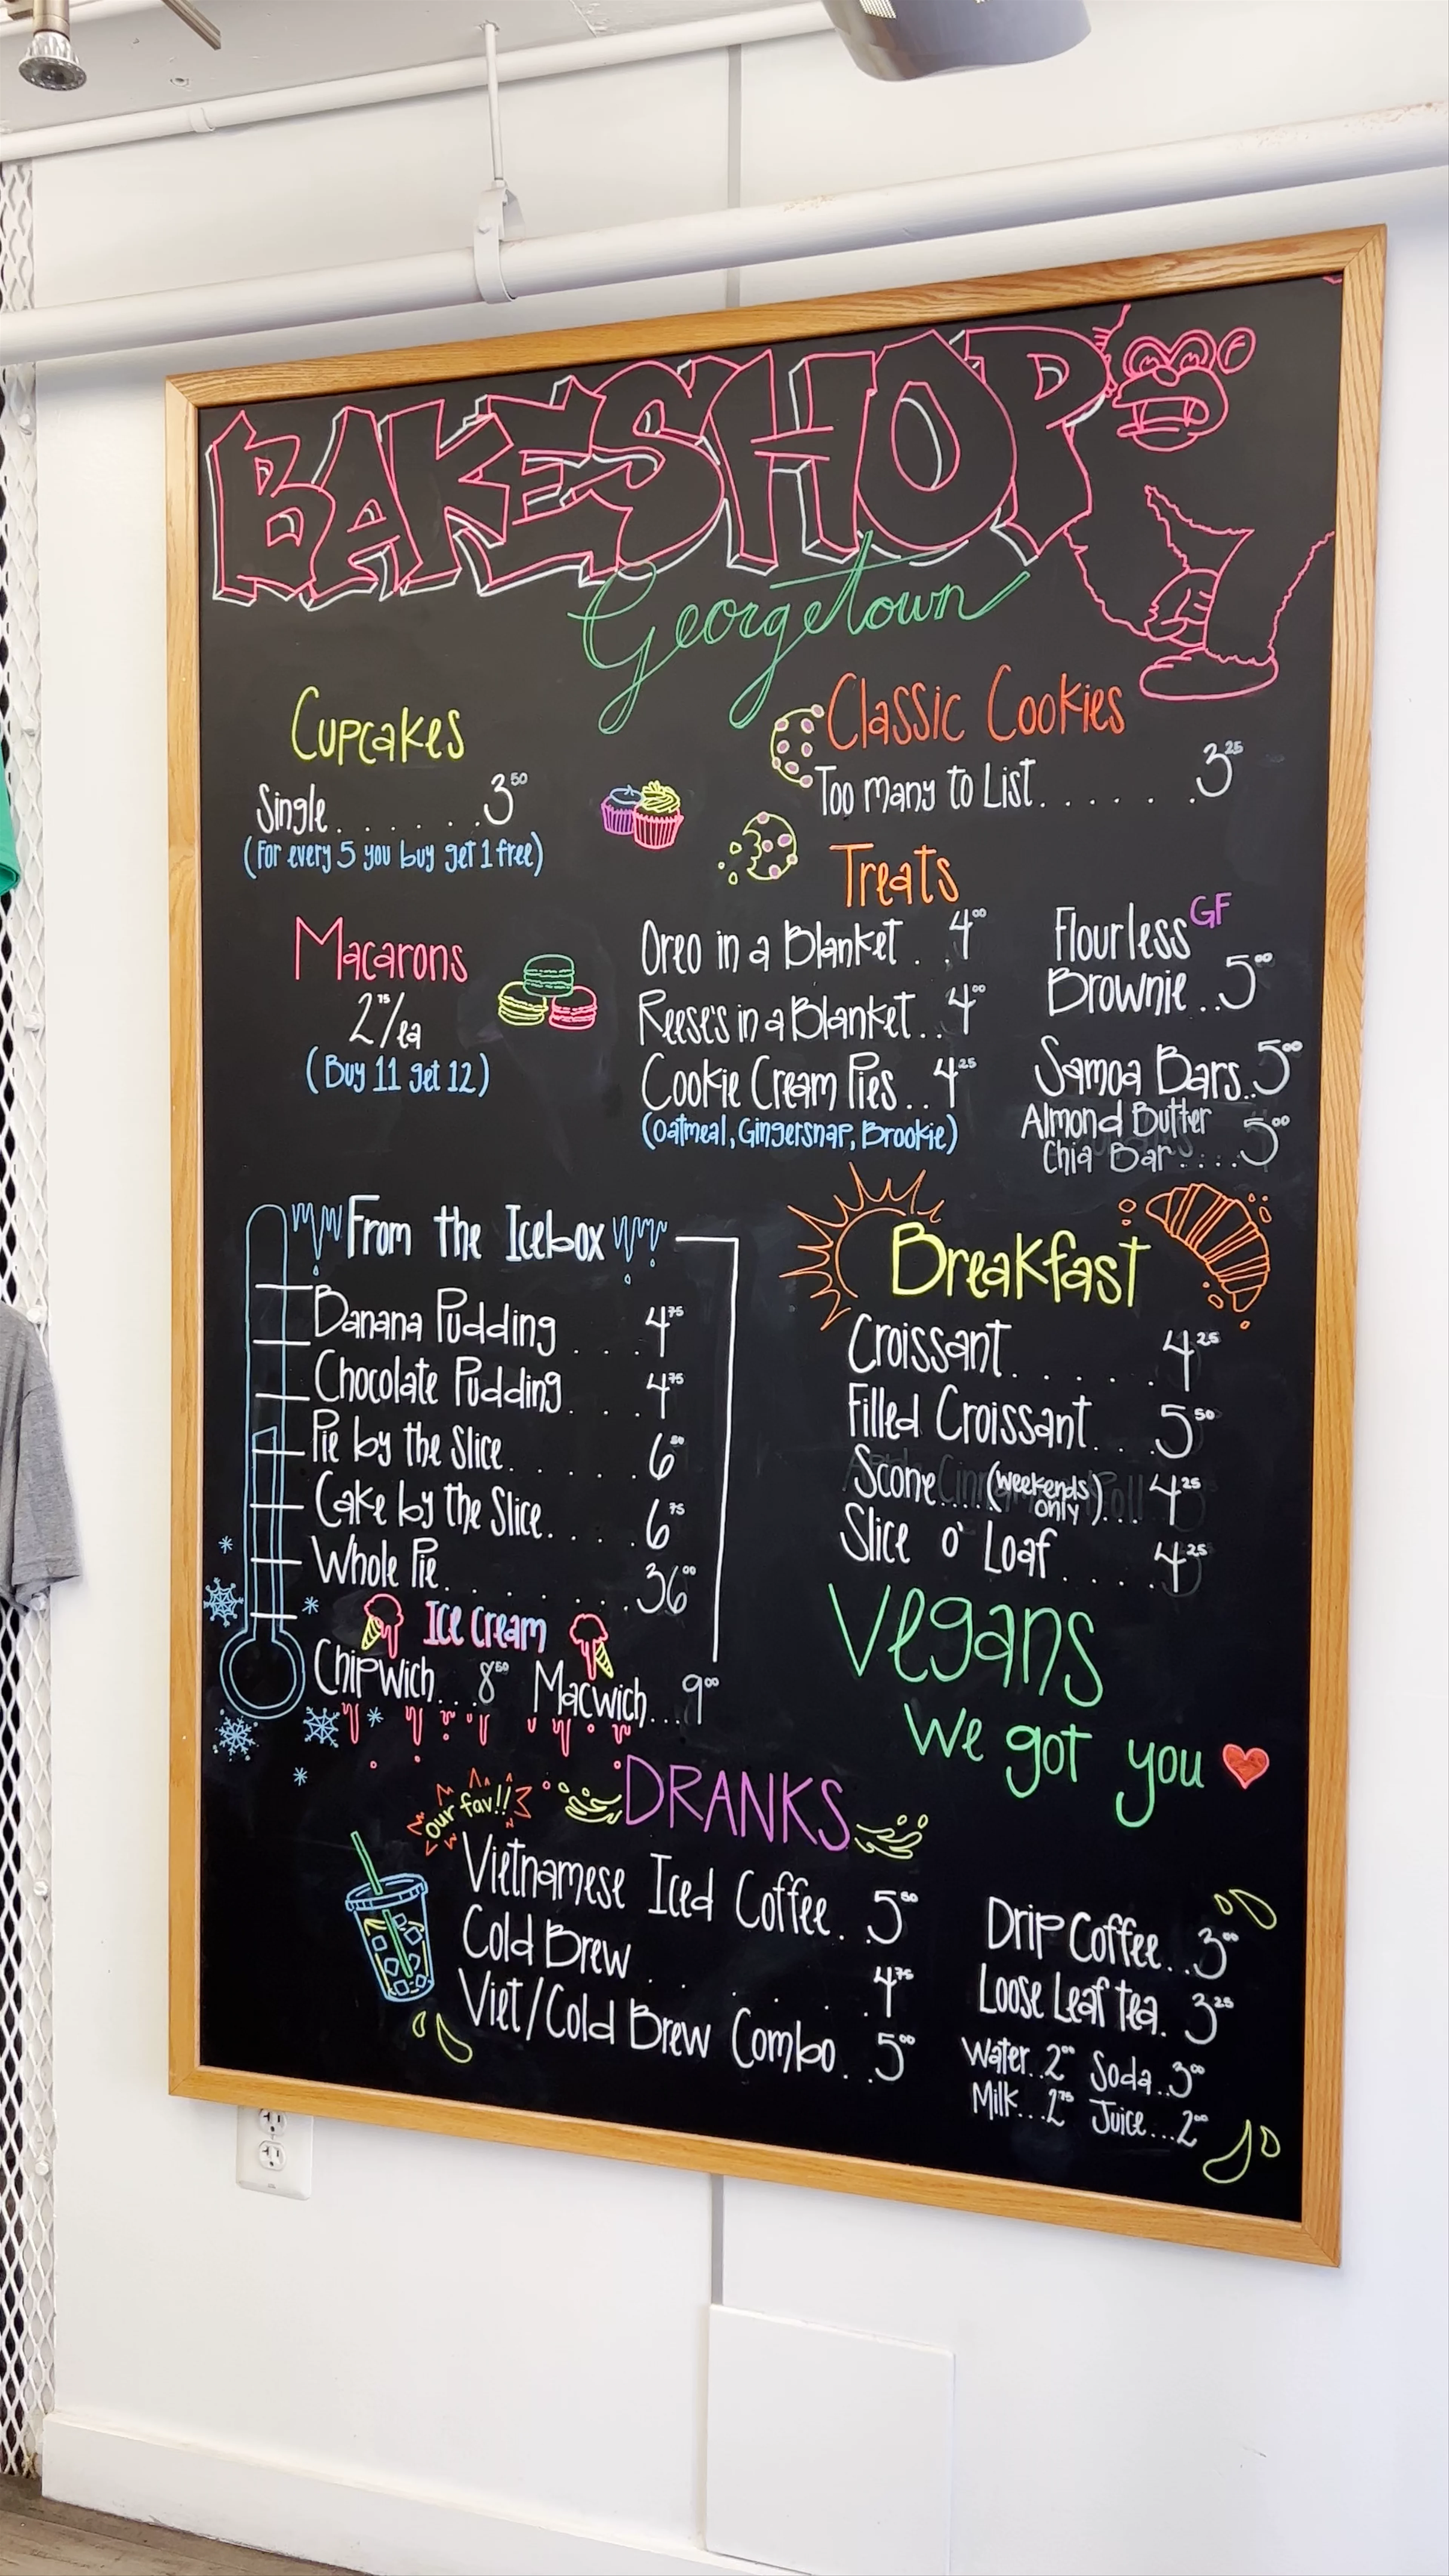 BAKESHOP
Georgetown
Cupcakes
Single.......3 50
(For every 5 you buy get 1 free)
Macarons
2 75/ea
(Buy 11 get 12)
Classic Cookies
Too many to List.......3 25
Treats
Oreo in a Blanket..4 00
Reese's in a Blanket..4 00
Cookie Cream Pies..4 25
(Oatmeal, Gingersnap, Brookie)
Flourless GF
Brownie..5 00
Samoa Bars..5 00
Almond Butter
Chia Bar....5 00
From the Icebox
Banana Pudding....4 75
Chocolate Pudding....4 75
Pie by the Slice......6 50
Cake by the Slice.....6 75
Whole Pie.......36 00
Ice Cream
Chipwich...8 50 Macwich...9 00
Breakfast
Croissant......4 25
Filled Croissant...5 50
Scone....(weekends only)...4 25
Slice o' Loaf....4 25
Vegans
We got you
Our fav!!
DRANKS
Vietnamese Iced Coffee..5
Cold Brew......4 75
Viet/Cold Brew Combo..5 00
Drip Coffee..3 00
Loose Leaf tea.3 25
Water..2 00 Soda..3 00
Milk...2 75 Juice...2 00